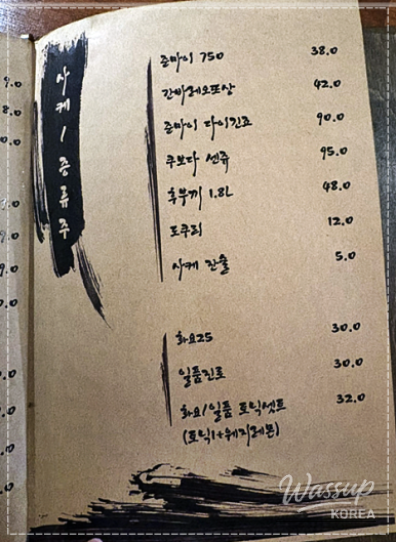 사케 / 증류주
준마이 750 38.0
간바레오또상 42.0
준마이 다이긴죠 90.0
쿠보다 센쥬 95.0
후부끼 1.8L 48.0
도쿠리 12.0
사케 잔술 5.0
화요25 30.0
일품진로 30.0
화요/일품 토닉셋트 32.0
(토닉1+웨지레몬)
Wassup
KOREA